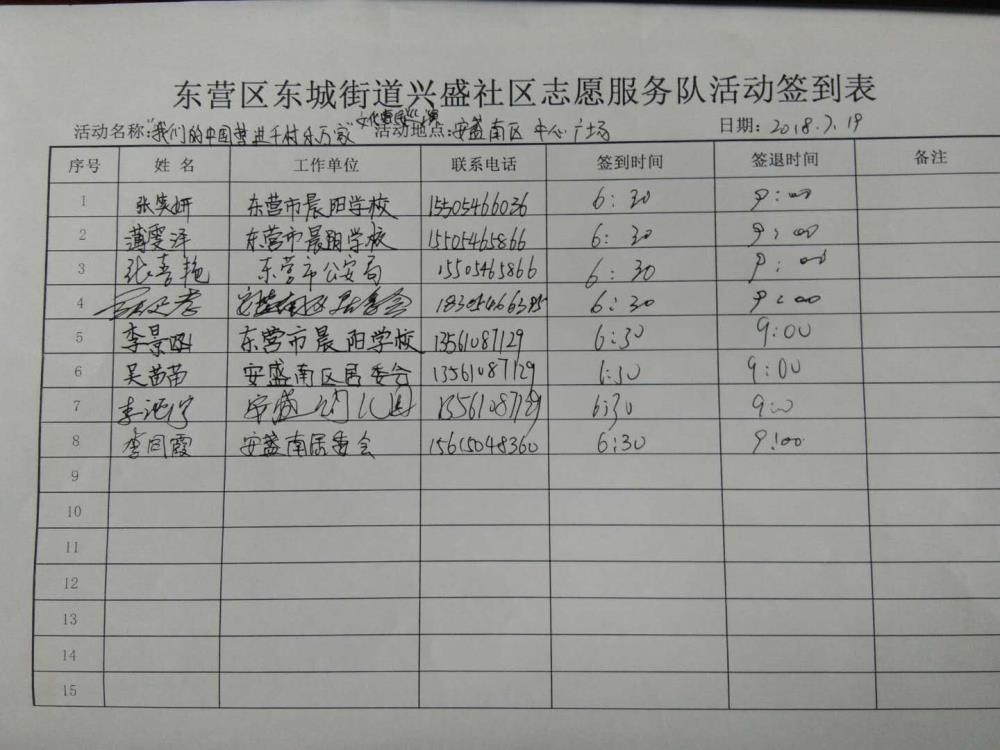 东营区东城街道兴盛社区志愿服务队活动签到表
活动名称:"我们的中国梦进千村乐万家"文化惠民 活动地点:安盛南区中心广场 日期:2018.7.19
序号 姓名 工作单位 联系电话 签到时间 签退时间 备注
1 张笑妍 东营市晨阳学校 15505466036 6:30 9:00
2 薄雯泽 东营市晨阳学校 15505465866 6:30 9:00
3 张喜艳 东营市公安局 15505465866 6:30 9:00
4 6:30 9:00
5 李景 东营市晨阳学校 13561087129 6:30 9:00
6 吴苗苗 安盛南区居委会 13561087129 6:30 9:00
7 李 安盛 13561087129 6:30 9:00
8 李同霞 安盛南居委会 15615048360 6:30 9:00
9
10
11
12
13
14
15